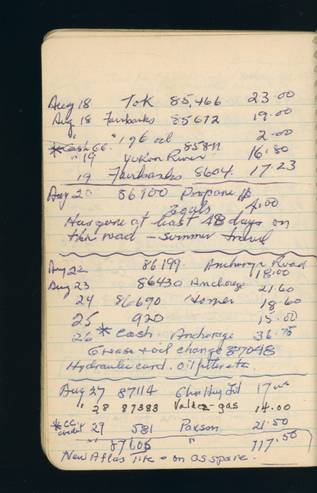 Aug 18 Tok 85,466 23.00
Aug 18 Fairbanks 85672 19.00
" " 1 qt oil 2.00
*Cash cc. 85811
" 19 Yukon River 16.80
19 Fairbanks 8604. 17.23
Aug 20 86900 Propane
gals 4.00
Has gone at least 48 days on
the road - summer travel
Aug 22 86199 Anchorage Road 18.00
Aug 23 86430 Anchorage 21.60
24 86690 Homer 18.60
25 920 15.00
26 * Cash Anchorage 36.75
Grease + oil change 87048
Hydraulic cord. oil filter etc.
Aug 27 87114 17.00
" 28 87388 Valdez - gas 14.00
*cc credit 29 581 Paxson 21.50
" 87606 117.50
New Atlas Tire - on as spare.